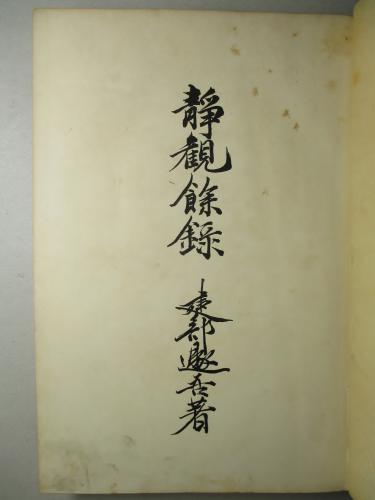 靜觀餘錄
建部遯吾著